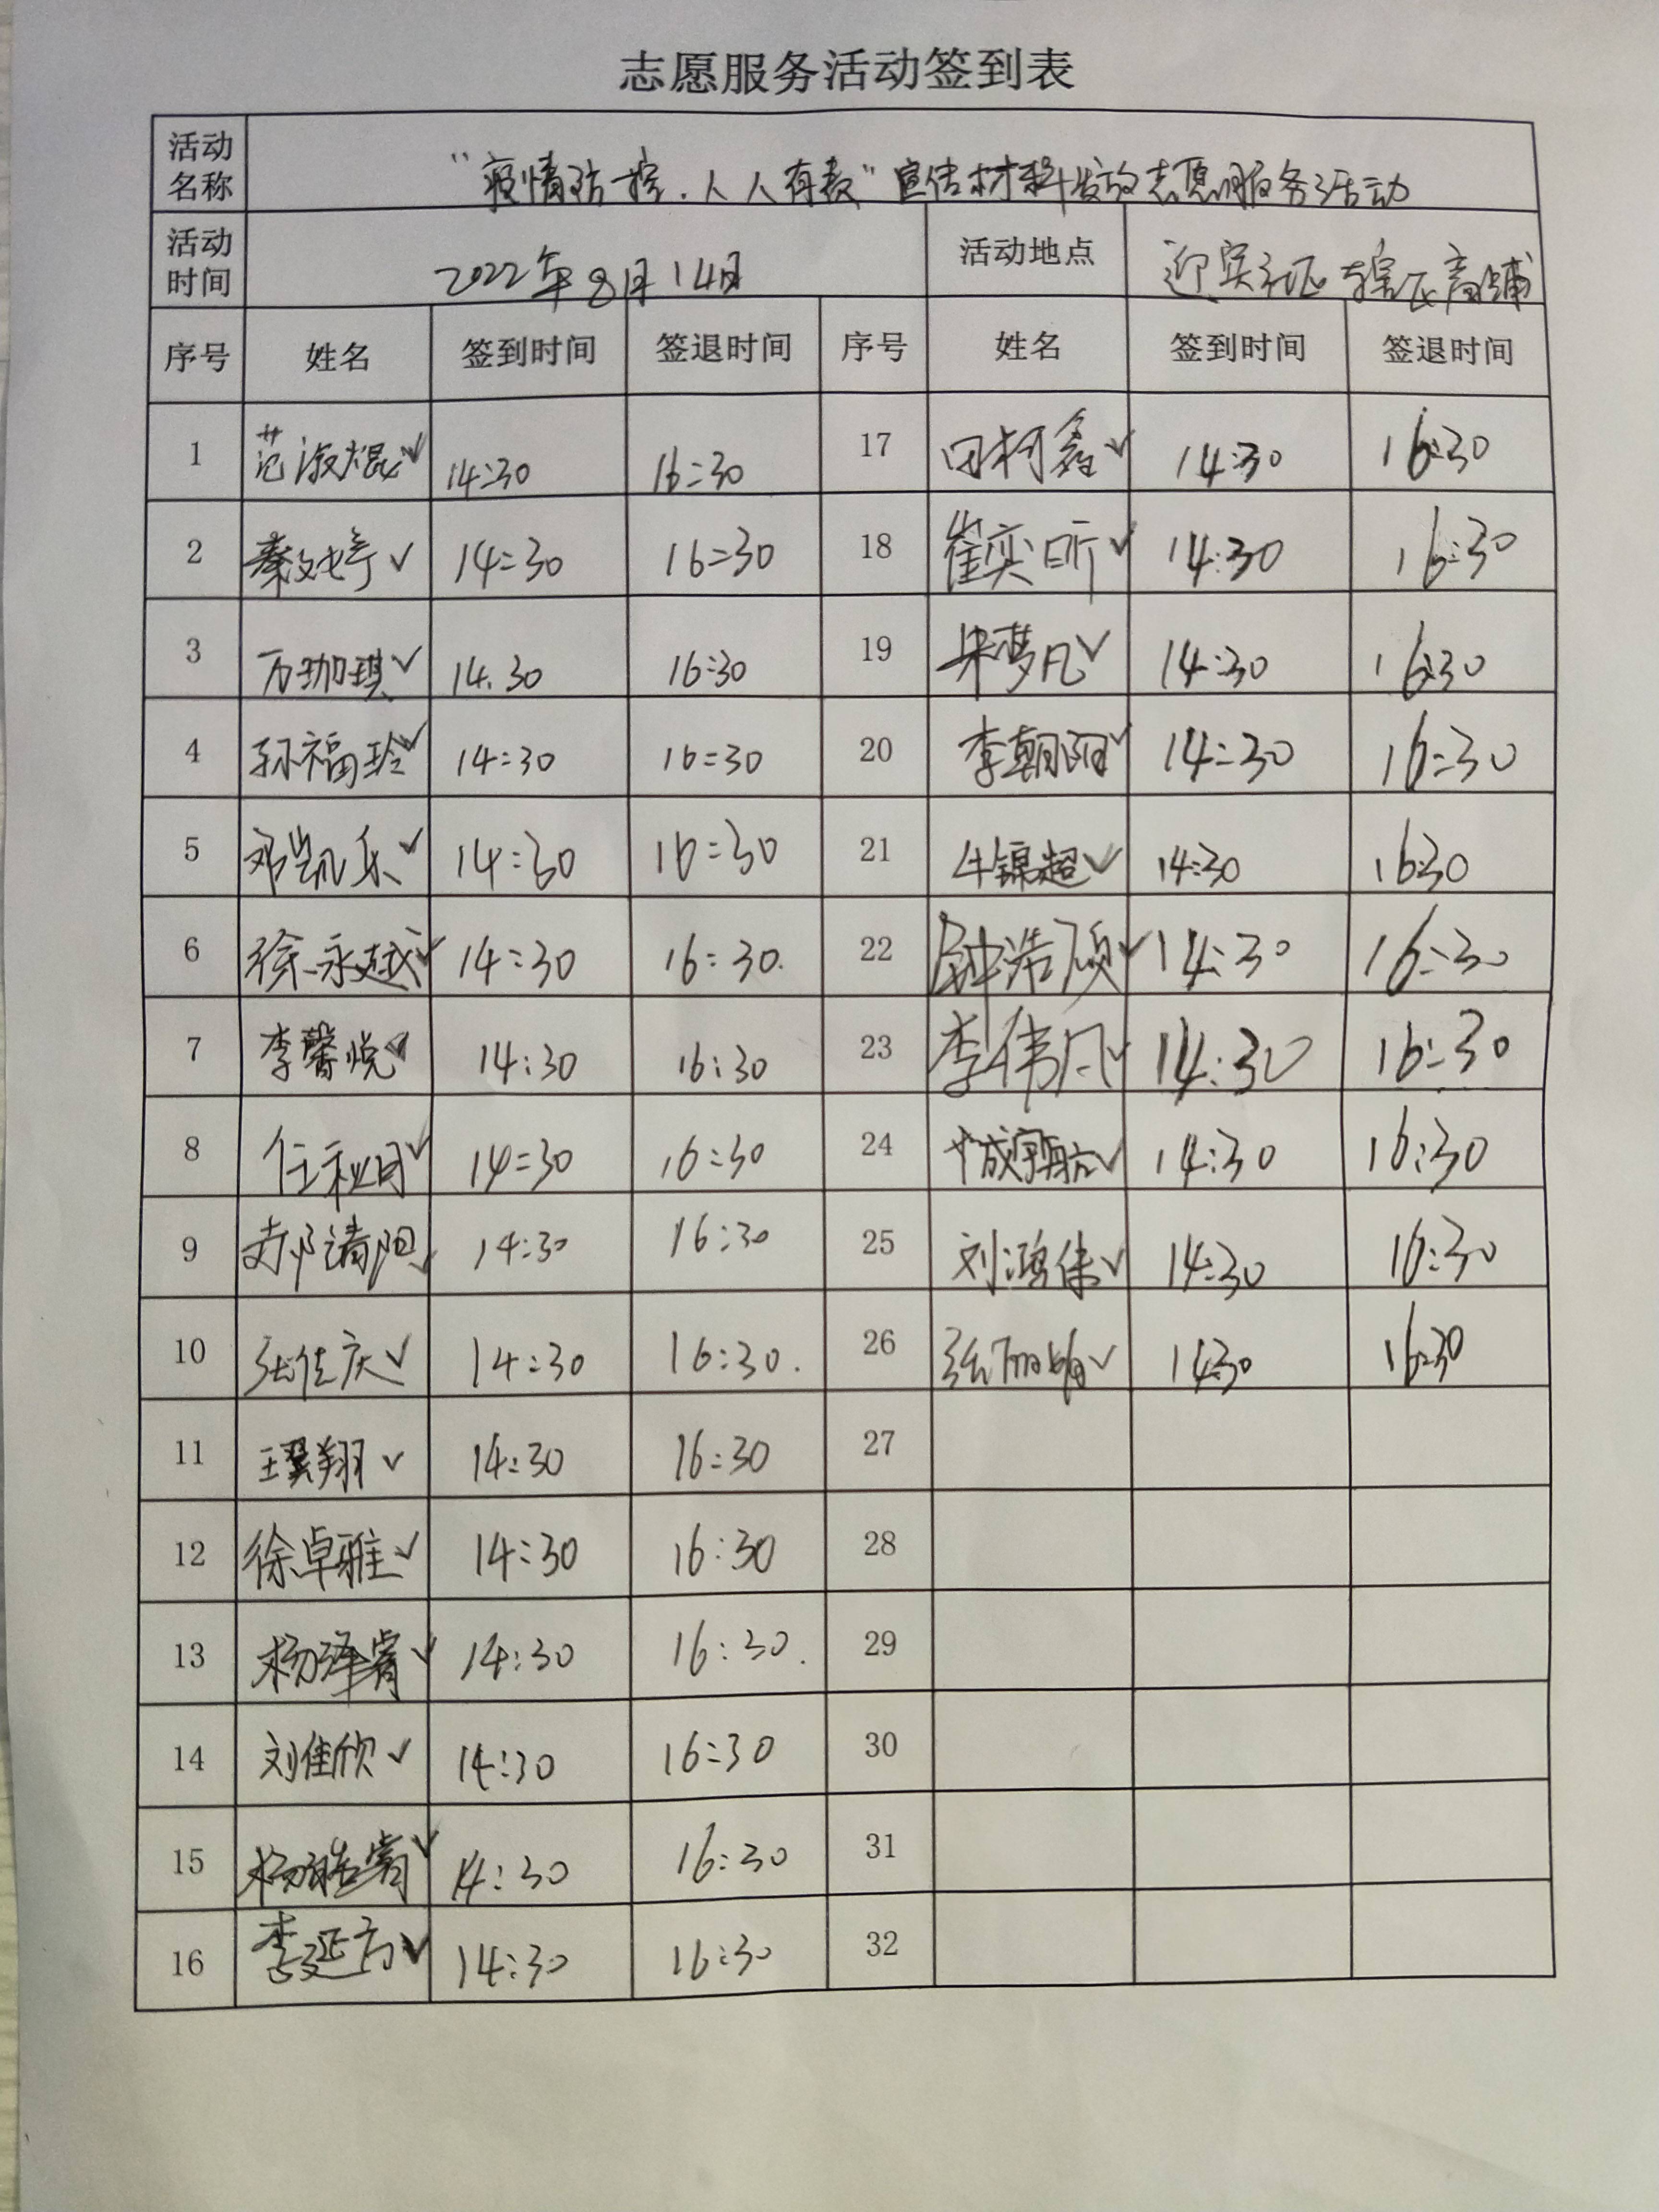 志愿服务活动签到表
活动名称 "疫情防控.人人有责"宣传材料发放志愿服务活动
活动时间 2022年8月14日 活动地点 迎宾社区辖区商铺
序号 姓名 签到时间 签退时间 序号 姓名 签到时间 签退时间
1 范淑焜✓ 14:30 16:30 17 田柯鑫✓ 14:30 16:30
2 秦文婷✓ 14:30 16:30 18 崔奕昕✓ 14:30 16:30
3 万珈琪✓ 14.30 16:30 19 朱梦凡✓ 14:30 16:30
4 孙福玲✓ 14:30 16:30 20 李朝阳✓ 14:30 16:30
5 邓凯乐✓ 14:30 16:30 21 牛锦超✓ 14:30 16:30
6 徐永越✓ 14:30 16:30. 22 钟浩硕✓ 14:30 16:30
7 李馨悦✓ 14:30 16:30 23 李伟凡✓ 14:30 16:30
8 ✓ 14:30 16:30 24 ✓ 14:30 16:30
9 ✓ 14:30 16:30 25 刘鸿伟✓ 14:30 16:30
10 张佳庆✓ 14:30 16:30. 26 ✓ 14:30 16:30
11 王翼翔✓ 14:30 16:30 27
12 徐卓雅✓ 14:30 16:30 28
13 杨泽睿✓ 14:30 16:30. 29
14 刘佳欣✓ 14:30 16:30 30
15 ✓ 14:30 16:30 31
16 李延方✓ 14:30 16:30 32